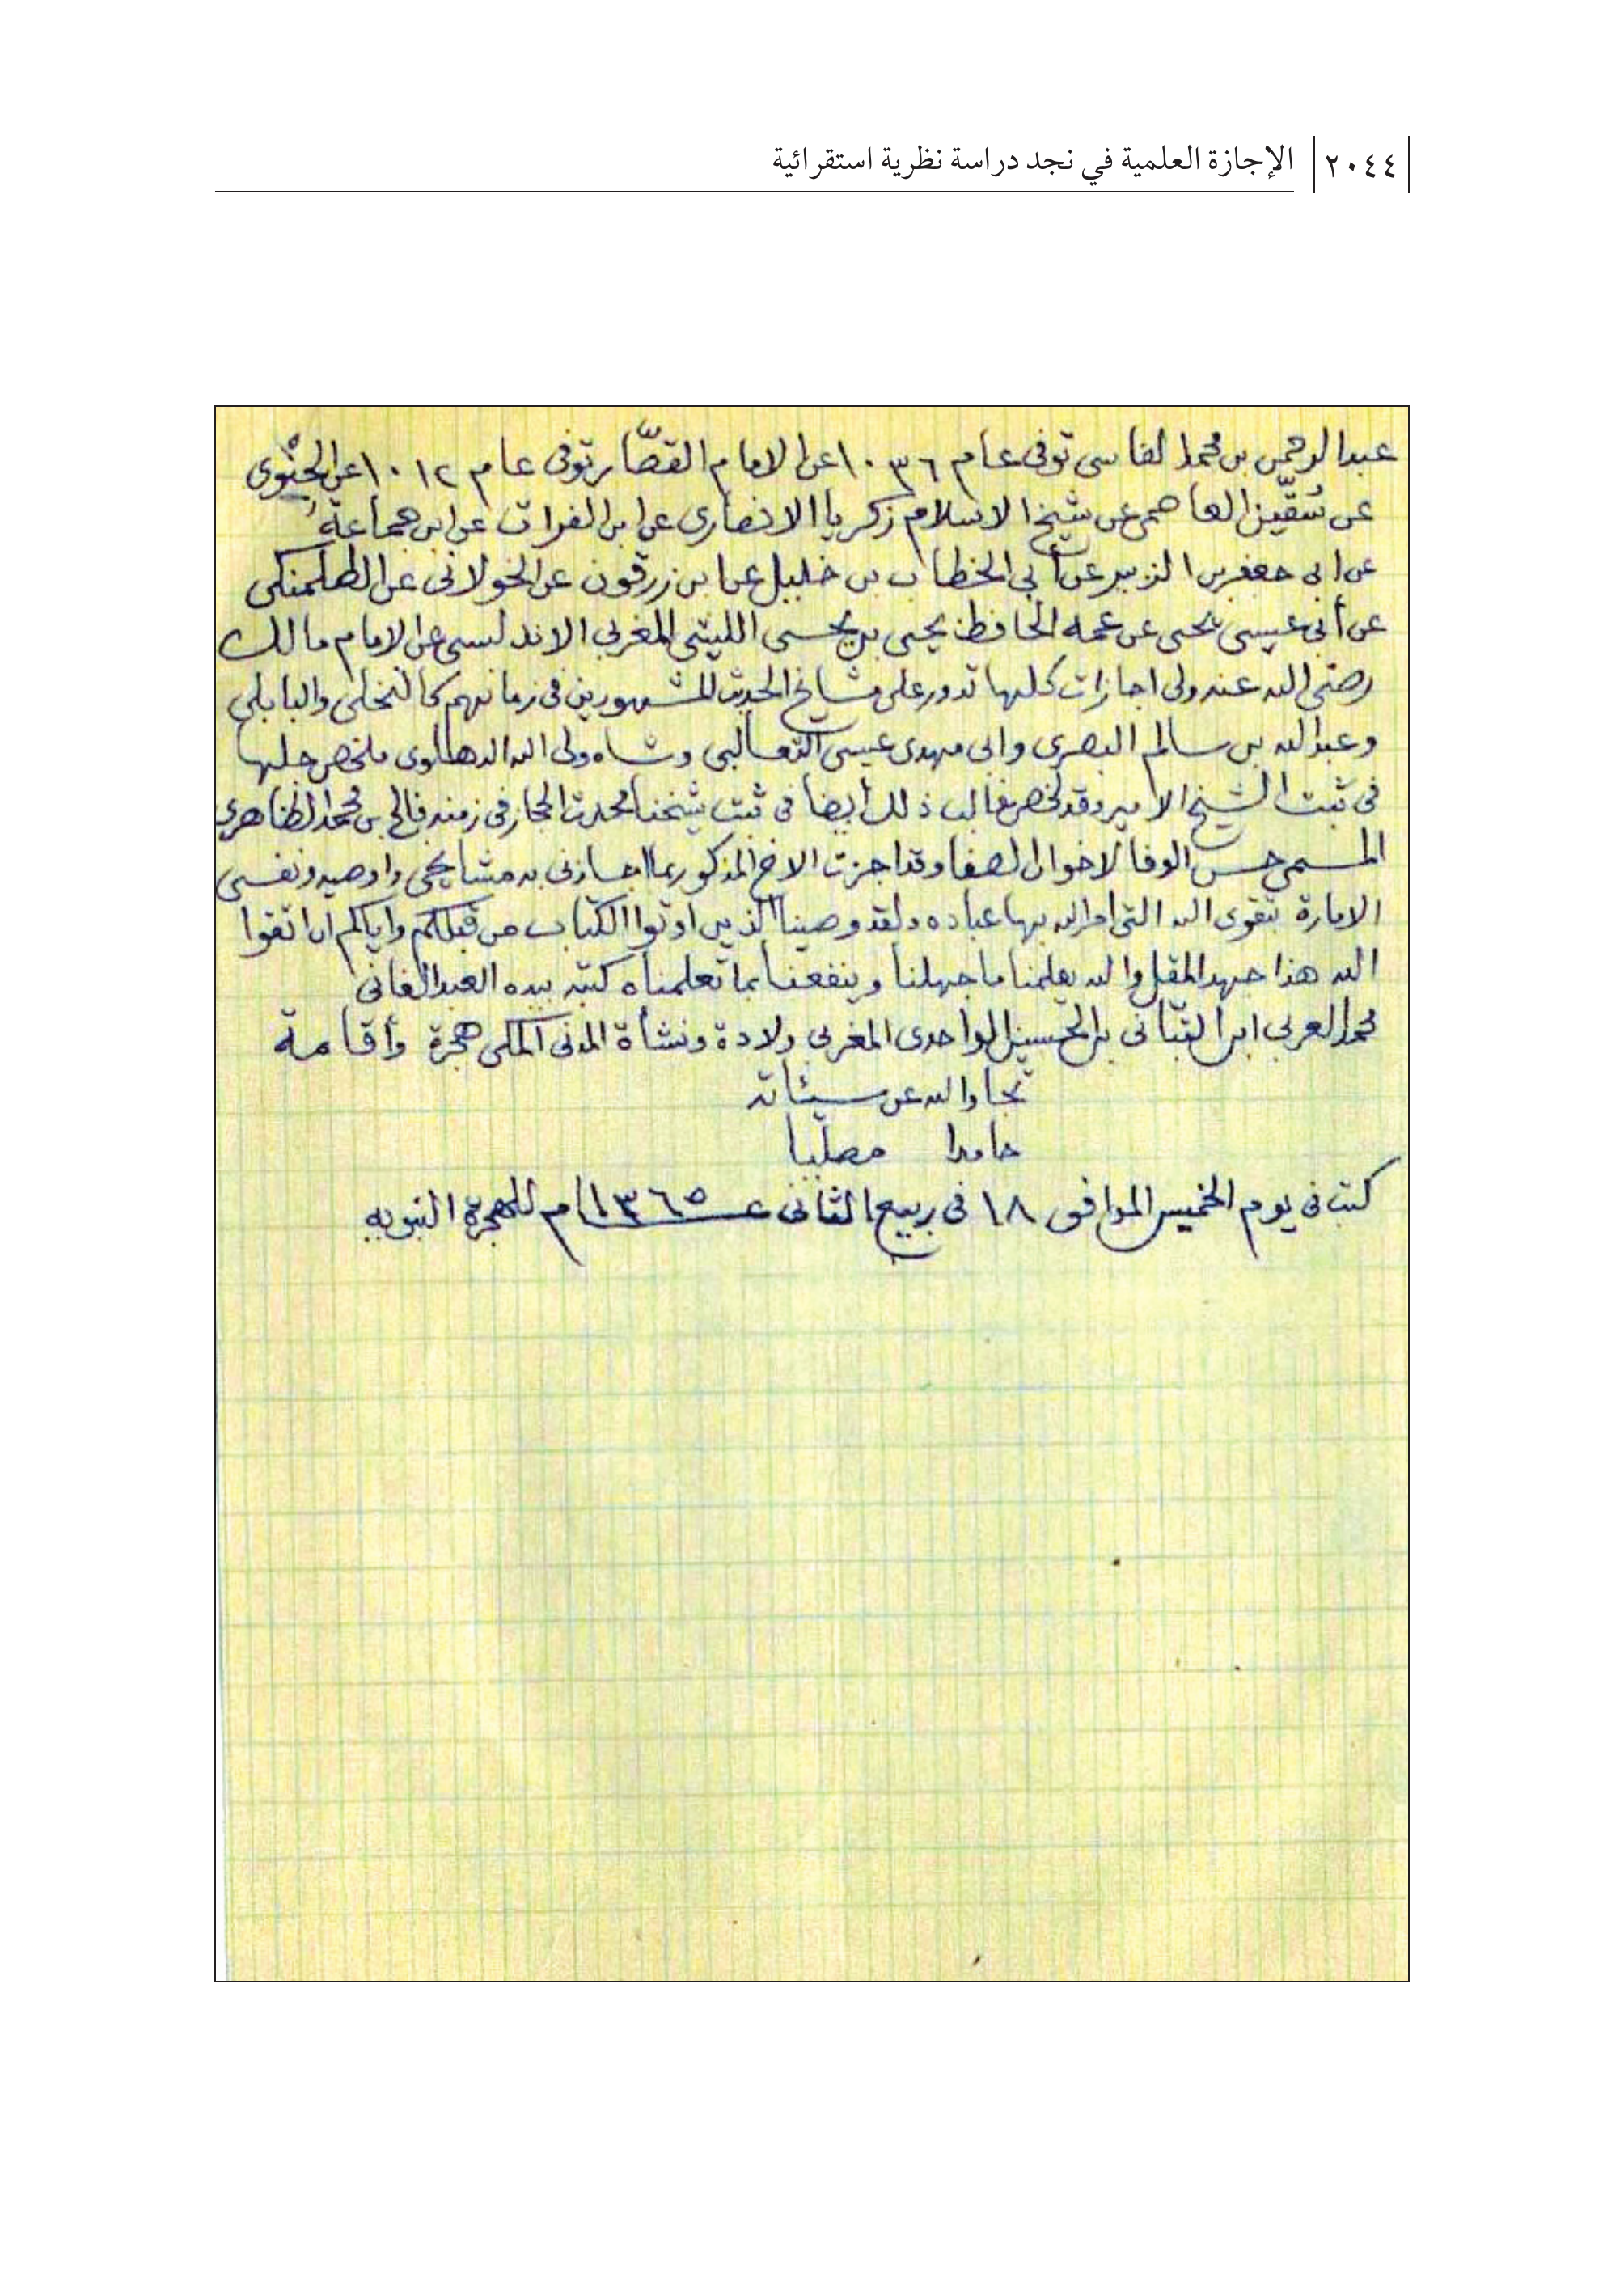 ٢٠٤٤ الإجازة العلمية في نجد دراسة نظرية استقرائية
عبد الرحمن بن محمد الفاسى توفى عام ١٠٣٦ عن الامام القصّار توفى عام ١٠١٢ عن
عن سُقّين العاصمى عن شيخ الاسلام زكريا الانصارى عن ابن الفرات عن ابن جماعة
عن ابى جعفر بن الزبير عن أبى الخطاب بن خليل عن ابن زرقون عن الخولانى عن الطلمنكى
عن أبى عيسى يحيى عن عمه الحافظ يحيى بن يحيى الليثى المغربى الاندلسى عن الامام مالك
رضى الله عنه ولى اجازات كلها تدور على مشايخ الحديث المشهورين فى زمانهم كالنخلى والبابلى
وعبد الله بن سالم البصرى وابى مهدى عيسى الثعالبى وشاه ولى الله الدهلوى ملخص جلها
فى ثبت الشيخ الامير وقد لخص غالب ذلك أيضا فى ثبت شيخنا محدث الحجاز فى زمنه فالح بن محمد الظاهرى
المسمى حسن الوفا لاخوان الصفا وقد اجزت الاخ المذكور بما اجازنى به مشايخى واوصيه ونفسى
الامارة بتقوى الله التى امر الله بها عباده ولقد وصينا الذين اوتوا الكتاب من قبلكم واياكم ان اتقوا
الله هذا جهد المقل والله يعلمنا ما جهلنا وينفعنا بما تعلمناه كتبه بيده العبد الفانى
محمد العربى ابن التبّانى بن الحسين الواحدى المغربى ولادة ونشأة المدنى المكى هجرة وأقامة
الله عن سيئاته
حامدا مصليا
كتب فى يوم الخميس الموافق ١٨ فى ربيع الثانى عام ١٣٦٥ للهجرة النبويه